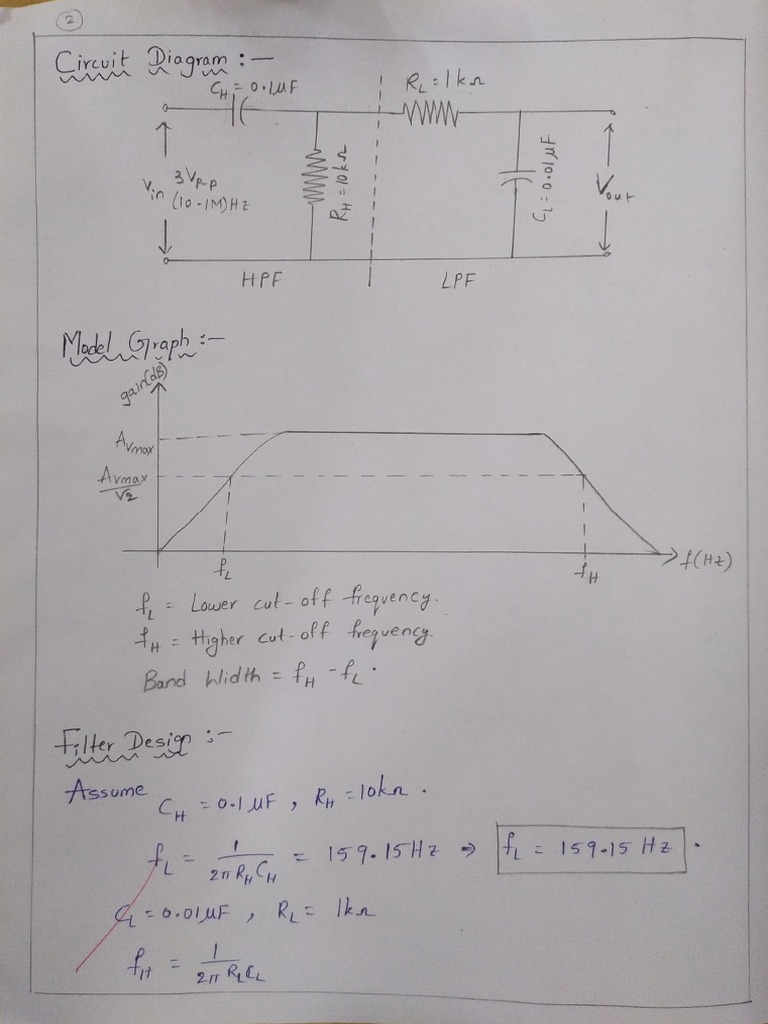 2
Circuit Diagram :-
C_H = 0.1 μF
R_L = 1kΩ
V_in 3V_p-p
(10-1M)Hz
R_H = 10kΩ
C_L = 0.01 μF
V_out
HPF
LPF
Model Graph :-
gain(dB)
A_vmax
A_vmax/√2
f_L
f_H
f(Hz)
f_L = Lower cut-off frequency.
f_H = Higher cut-off frequency.
Band Width = f_H - f_L.
Filter Design :-
Assume C_H = 0.1 μF , R_H = 10kΩ .
f_L = 1/2π R_H C_H = 159.15 Hz ⇒ f_L = 159.15 Hz .
C_L = 0.01 μF , R_L = 1kΩ
f_H = 1/2π R_L C_L